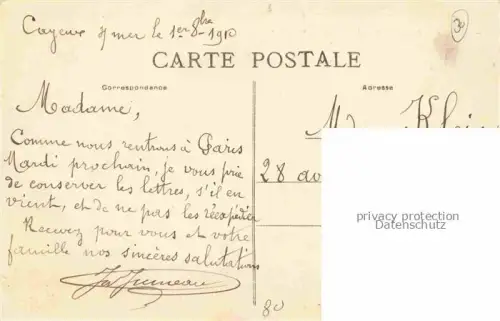 Cayeux s/ mer le 1er 8bre 1910
CARTE POSTALE
Correspondance
Adresse
Madame,
Comme nous rentrons à Paris
Mardi prochain, je vous prie
de conserver les lettres, s'il en
vient, et de ne pas les réexpédier
Recevez pour vous et votre
famille nos sincères salutations
28 av
privacy protection
Datenschutz
80